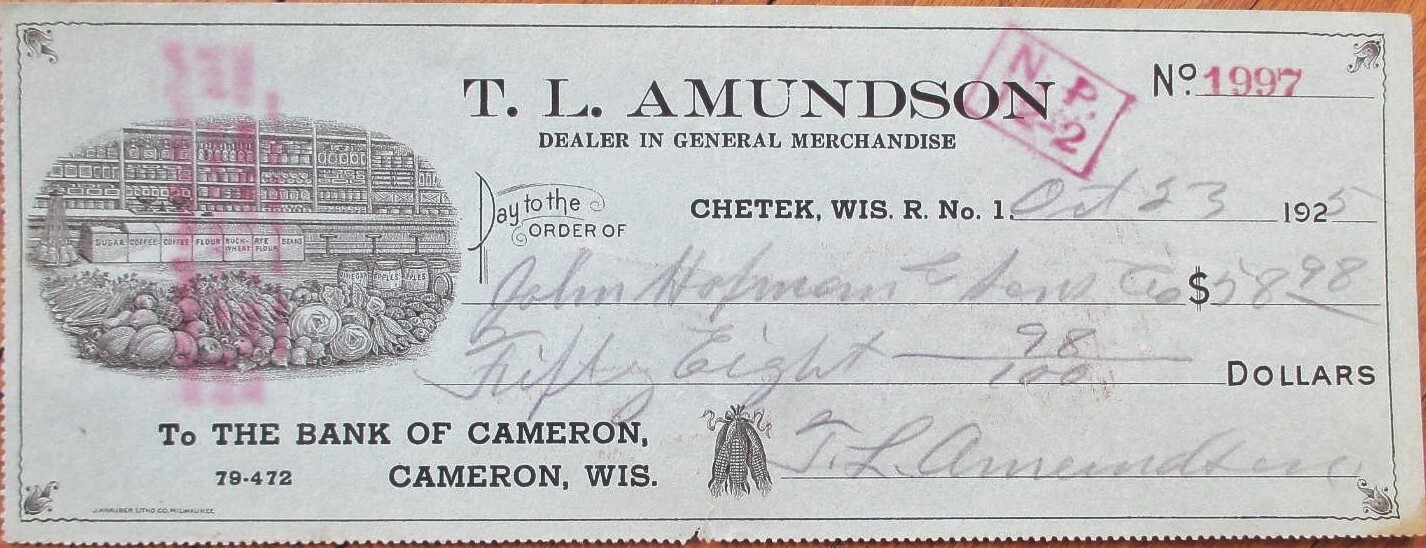 T. L. AMUNDSON
DEALER IN GENERAL MERCHANDISE
N. P.
-2
Nº. 1997
CHETEK, WIS. R. No. 1. Oct 23 1925
Pay to the
ORDER OF
John Hofmans & Sons Co $58 98
Fifty Eight 98/100 DOLLARS
SUGAR COFFEE COFFEE FLOUR BUCK-WHEAT RYE FLOUR BEANS
VINEGAR APPLES APPLES
To THE BANK OF CAMERON,
79-472 CAMERON, WIS.
T. L. Amundson
J. KNAUBER LITHO. CO. MILWAUKEE